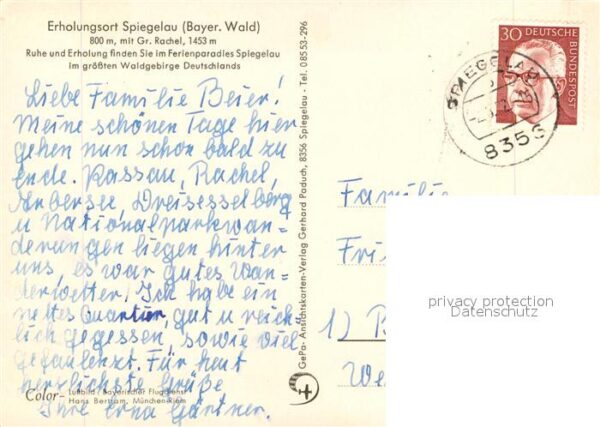 Erholungsort Spiegelau (Bayer. Wald)
800 m, mit Gr. Rachel, 1453 m
Ruhe und Erholung finden Sie im Ferienparadies Spiegelau
im größten Waldgebirge Deutschlands
Liebe Familie Beier!
Meine schönen Tage hier
gehen nun schon bald zu
ende. Passau, Rachel,
Arbersee, Dreisesselberg
u Nationalparkwan=
derungen liegen hinter
uns, es war gutes Wan=
derwetter. Ich habe ein
nettes Quartier, gut u reich=
lich gegessen, sowie viel
gefaulenzt. Für heut
herzlichste Grüße
Ihre Erna Gärtner.
Color- Luftbild / Bayerischer Flugdienst
Hans Bertram, München-Riem
GePa- Ansichtskarten-Verlag Gerhard Paduch, 8356 Spiegelau - Tel. 08553-296
30 DEUTSCHE
BUNDESPOST
SPIEGELAU
8353
Familie
Fri
1) B
We
privacy protection
Datenschutz